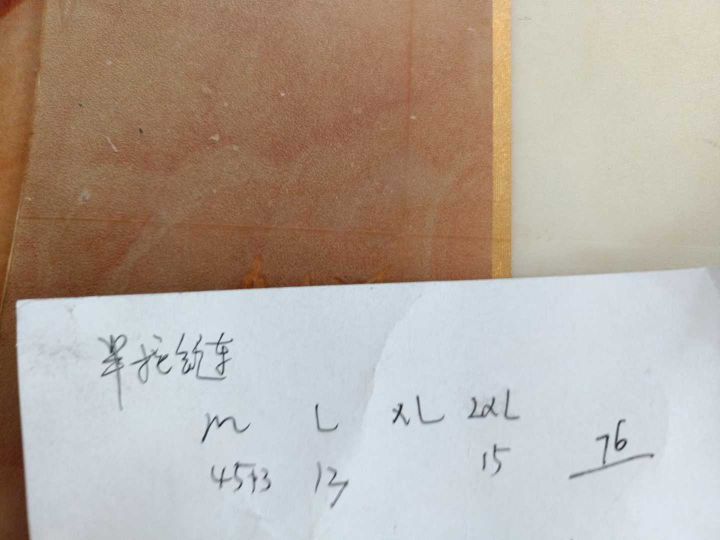 单拉链车
M L XL 2XL
45+3 13 15 76